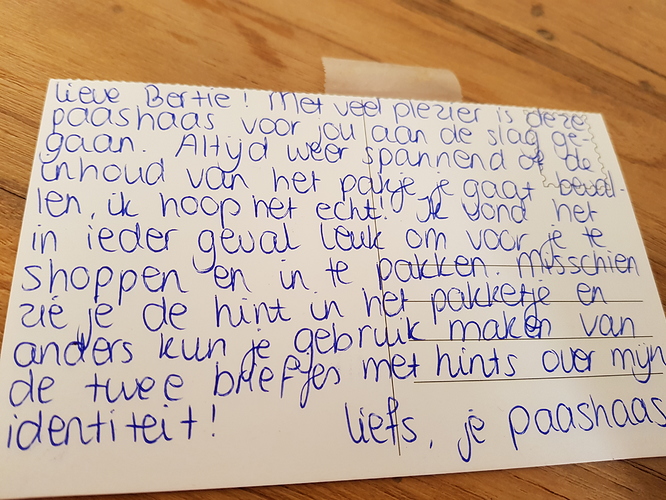 Lieve Bertie! Met veel plezier is deze
paashaas voor jou aan de slag ge-
gaan. Altijd weer spannend of de
inhoud van het pakje je gaat beval-
len, ik hoop het echt! Ik vond het
in ieder geval leuk om voor je te
shoppen en in te pakken. Misschien
zie je de hint in het pakketje en
anders kun je gebruik maken van
de twee briefjes met hints over mijn
identiteit!
liefs, je paashaas